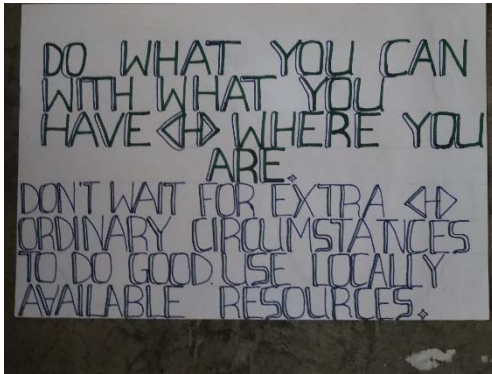 DO WHAT YOU CAN
WITH WHAT YOU
HAVE <H> WHERE YOU
ARE.
DON'T WAIT FOR EXTRA <H>
ORDINARY CIRCUMSTANCES
TO DO GOOD. USE LOCALLY
AVAILABLE RESOURCES.